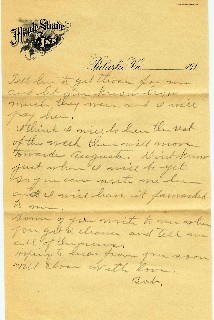 Maple Shade
Pulaski, Va. 191
Tell her to get those for me
and let you know how
much they were and I will
pay her.
I think I will be here the rest
of the week then will move
towards
just when I will be
you can write me here
and I will have it forwarded
to me.
Some of you write to me when
you get a chance and tell me
all of the news.
Hoping to hear from you soon
will close with love.
Bob.